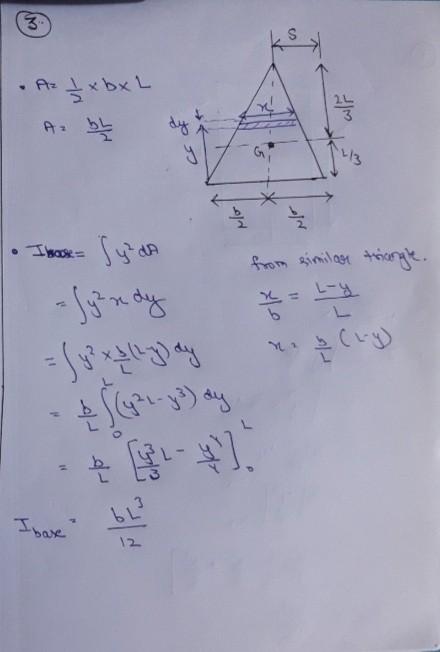 3.
S
• A = 1/2 × b × L
A = bL/2
x
dy
y
G
2L/3
L/3
b/2 b/2
• Ibase = ∫y² dA
= ∫y² x dy
= ∫y² × b/L (L-y) dy
= b/L ∫₀ᴸ (y²L - y³) dy
= b/L [y³/3 L - y⁴/4]₀ᴸ
Ibase = bL³/12
from similar triangle.
x/b = L-y/L
x = b/L (L-y)